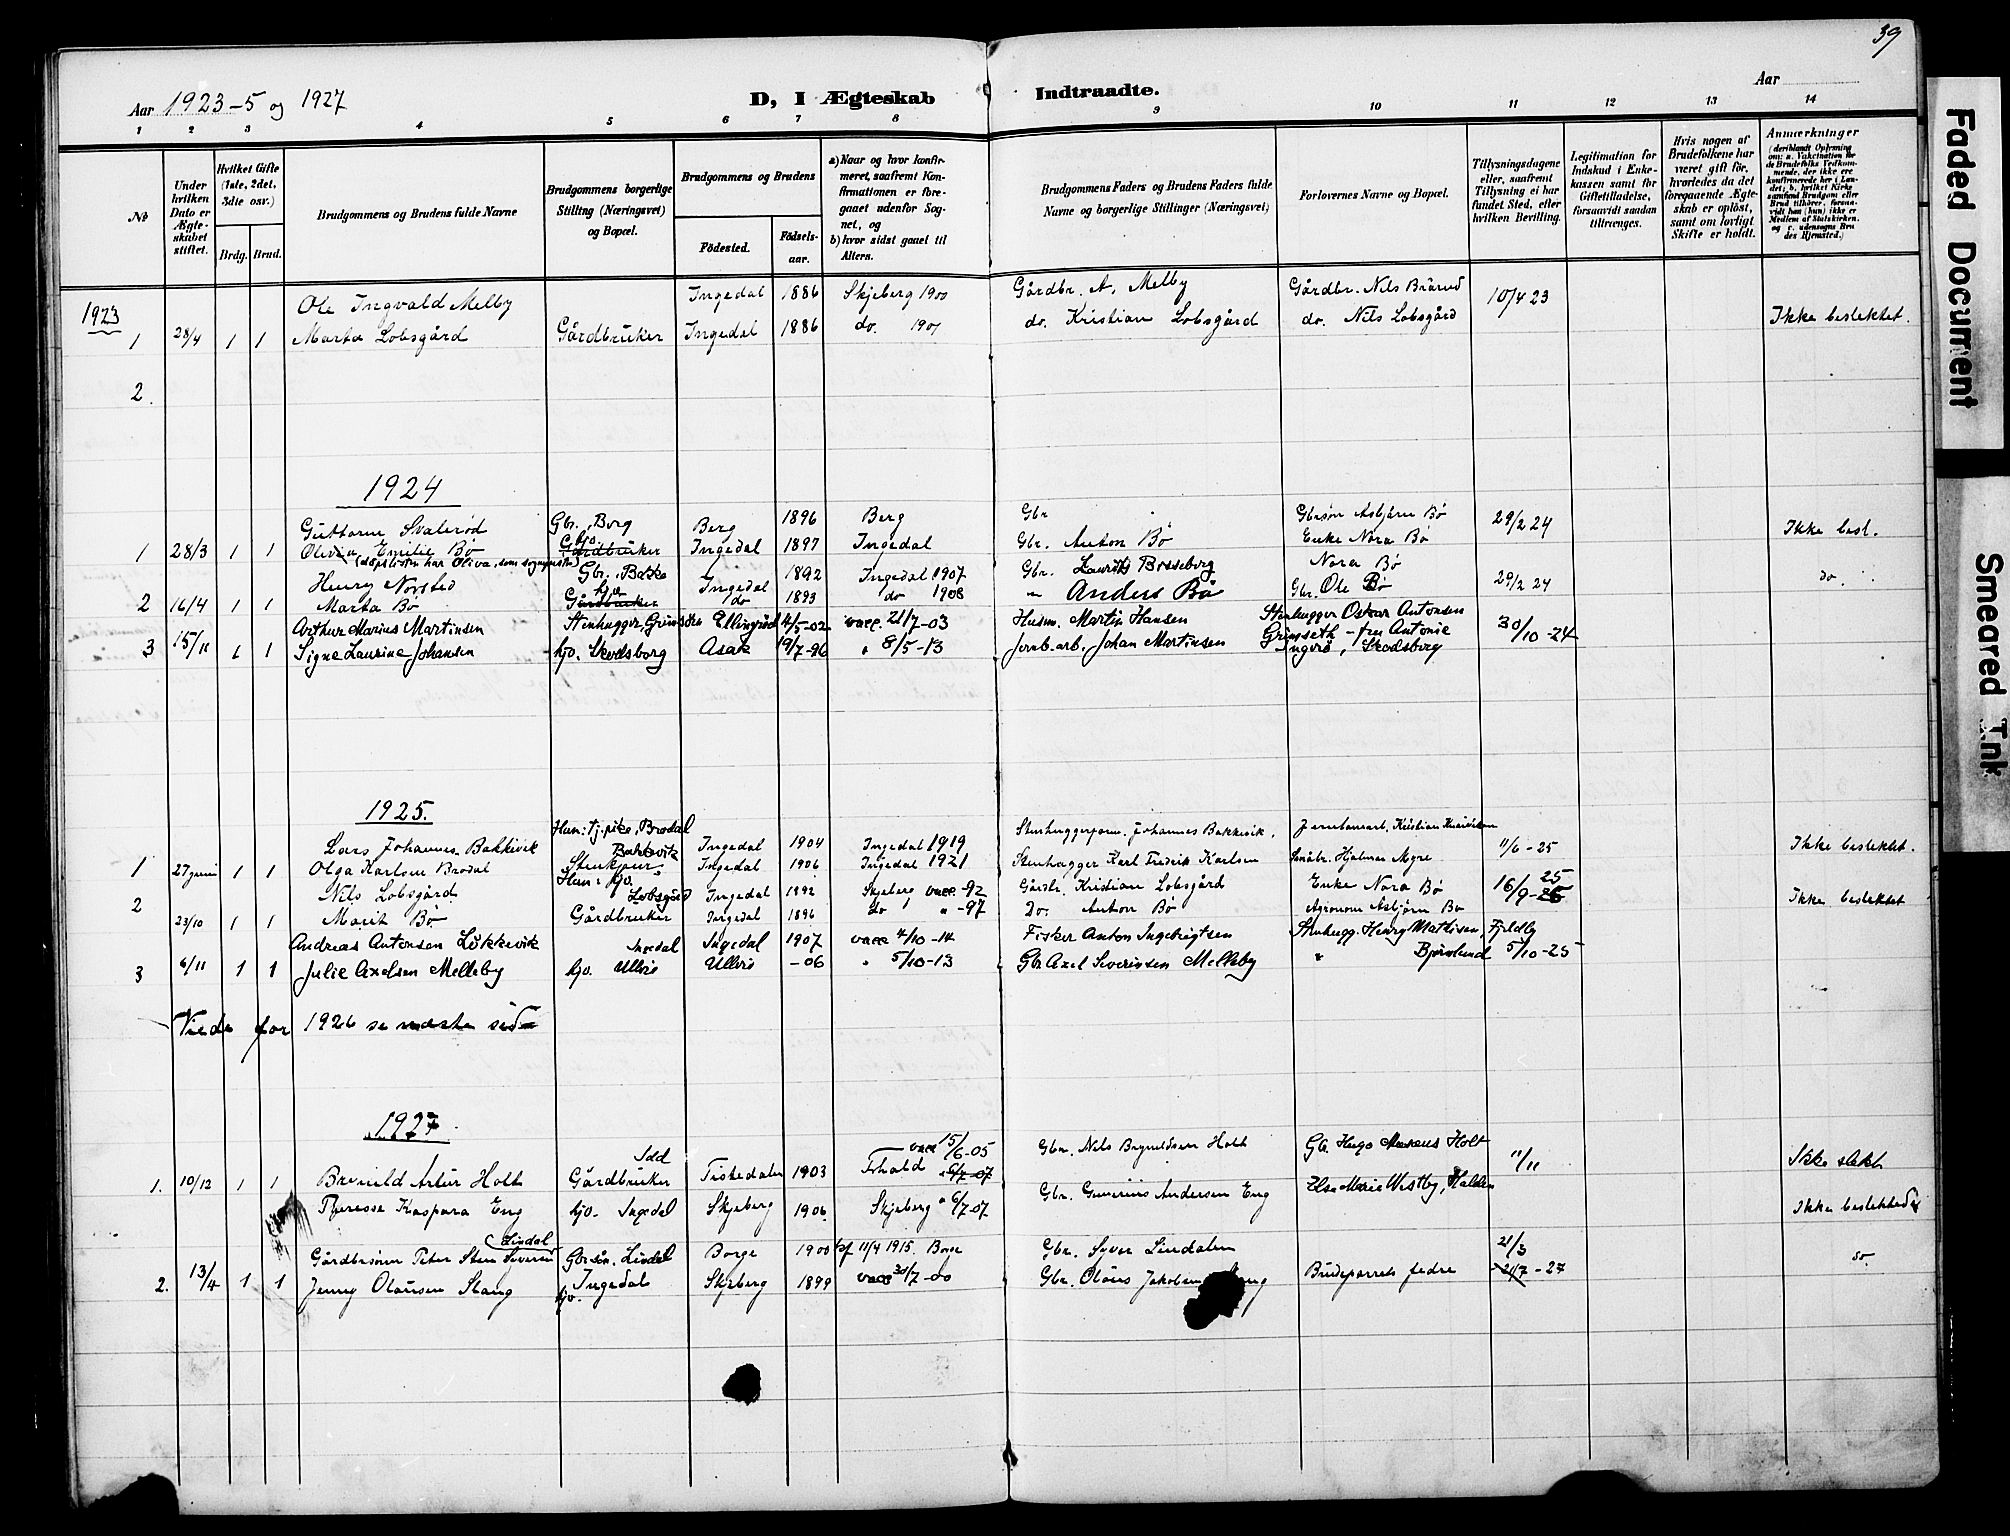 39
Aar 1923-5 og 1927
D, I Ægteskab Indtraadte.
Aar
1 2 3 4 5 6 7 8 9 10 11 12 13 14
No
Under hvilken Dato er Ægteskabet stiftet.
Hvilket Gifte (1ste, 2det, 3die osv.)
Brdg. Brud.
Brudgommens og Brudens fulde Navne
Brudgommens borgerlige Stilling (Næringsvei) og Bopæl.
Brudgommens og Brudens
Fødested. Fødselsaar.
a) Naar og hvor konfirmeret, saafremt Konfirmationen er foregaaet udenfor Sognet, og
b) hvor sidst gaaet til Alters.
Brudgommens Faders og Brudens Faders fulde Navne og borgerlige Stillinger (Næringsvei)
Forlovernes Navne og Bopæl.
Tillysningsdagene eller, saafremt Tillysning ei har fundet Sted, efter hvilken Bevilling.
Legitimation for Indskud i Enkekassen samt for Giftetilladelse, forsaavidt saadan tiltrænges.
Hvis nogen af Brudefolkene har været gift før, hvorledes da det foregaaende Ægteskab er opløst, samt om lovligt Skifte er holdt.
Anmærkninger
(deriblandt Oplysning om: a. Vakcination for de Brudefolks Vedkommende, der ikke ere konfirmerede her i Landet; b. hvilket Kirkesamfund Brudgom eller Brud tilhører, forsaavidt han (hun) ikke er Medlem af Statskirken, og c. udensogns Brudes Hjemsted.)
1923
Ole Ingvald Melby Ingedal 1886 Skjeberg 1900 Gårdbr. A. Melby Gårdbr. Nils 10/4 23
1 28/4 1 1 Marta Lobsgård Gårdbruker Ingedal 1886 do. 1901 do. Kristian Lobsgård do. Nils Lobsgård Ikke beslektet.
2.
1924
Guttorm Svalerød Gbr., Borg Berg 1896 Berg Gbr Gbrsøn Asbjørn Bø 29/2 24
1 28/3 1 1 Emilie Bø hjv. Gårdbruker Ingedal 1897 Ingedal Gbr. Anton Bø Enke Nora Bø Ikke besl.
(døpslisten har Oliva, som
Henry Norsted Gbr. 1892 Ingedal 1907 Gbr. Laurits Nora Bø
2 16/4 1 1 Marta Bø Gårdbruker Ingedal do 1893 do 1908 " Anders Bø Gbr. Ole Bø 29/2 24 do.
Arthur Marius Martinsen Stenhugger, 4/5-02 vacc. 21/7-03 Husm. Martin Hansen Stenhugger Oskar Antonsen
3 15/11 1 1 Signe Laurine Johansen hjv. Skodsborg Asak 19/7-96 " 8/5-13 Jernb.arb. Johan Martinsen Grimseth - fru Antonie 30/10-24
Skodsberg
1925.
Hun: tj.pike, Brødal
Lars Johannes Bakkevik Bakkevik Ingedal 1904 Ingedal 1919 Johannes Bakkevik. Kristian 11/6-25 Ikke beslektet.
1 27 juni 1 1 Olga Karlsen Brødal Ingedal 1906 Ingedal 1921 Stenhugger Karl Fredrik Karlsen Hjalmar
Nils Lobsgård Hun: hjv. Lobsgård Ingedal 1892 Skjeberg vacc. -92 Gårdbr. Kristian Lobsgård Enke Nora Bø 16/9-25 Ikke beslektet
2 23/10 1 1 Marit Bø Gårdbruker Ingedal 1896 do " -97 Do. Anton Bø Agronom Asbjørn Bø
Andreas Antonsen Løkkevik Ingedal Ingedal 1907 vacc 4/10-14 Fisker Anton Ingebrigtsen Stenhugg. Henry Mathisen, Fjeldby
3 6/11 1 1 Julie Axelsen Melleby hjv. Ullerø Ullerø -06 " 5/10-13 Gbr Axel Severinsen Melleby " Bjørnlund 5/10-25
Viede for 1926 se næste side
1927
Idd vacc 15/6-05 Gbr. Nils Holt Gb. Hugo Holt
1. 10/12 1 1 Artur Holt Gårdbruker Tistedalen 1903 F.hald 6/7-07 11/11 Ikke slekt
Kaspara Eng hjv. Ingedal Skjeberg 1906. Skjeberg " 6/7-07 Gbr. Andersen Eng Else Marie Westby, Halden Ikke beslektede
Lindal
Gårdbrsønn Peter Sten Gbrsøn. Lindal Borge 1900 kf 11/4 1915. Borge Gbr. Syver Lindalen 21/3 do.
2. 13/4 1 1 Jenny Olausen Stang hjv. Ingedal Skjeberg 1899 vacc 30/7-00 Gbr. Olaus Jakobsen Brudeparrets fedre 21/7-27
Faded Document
Smeared Ink